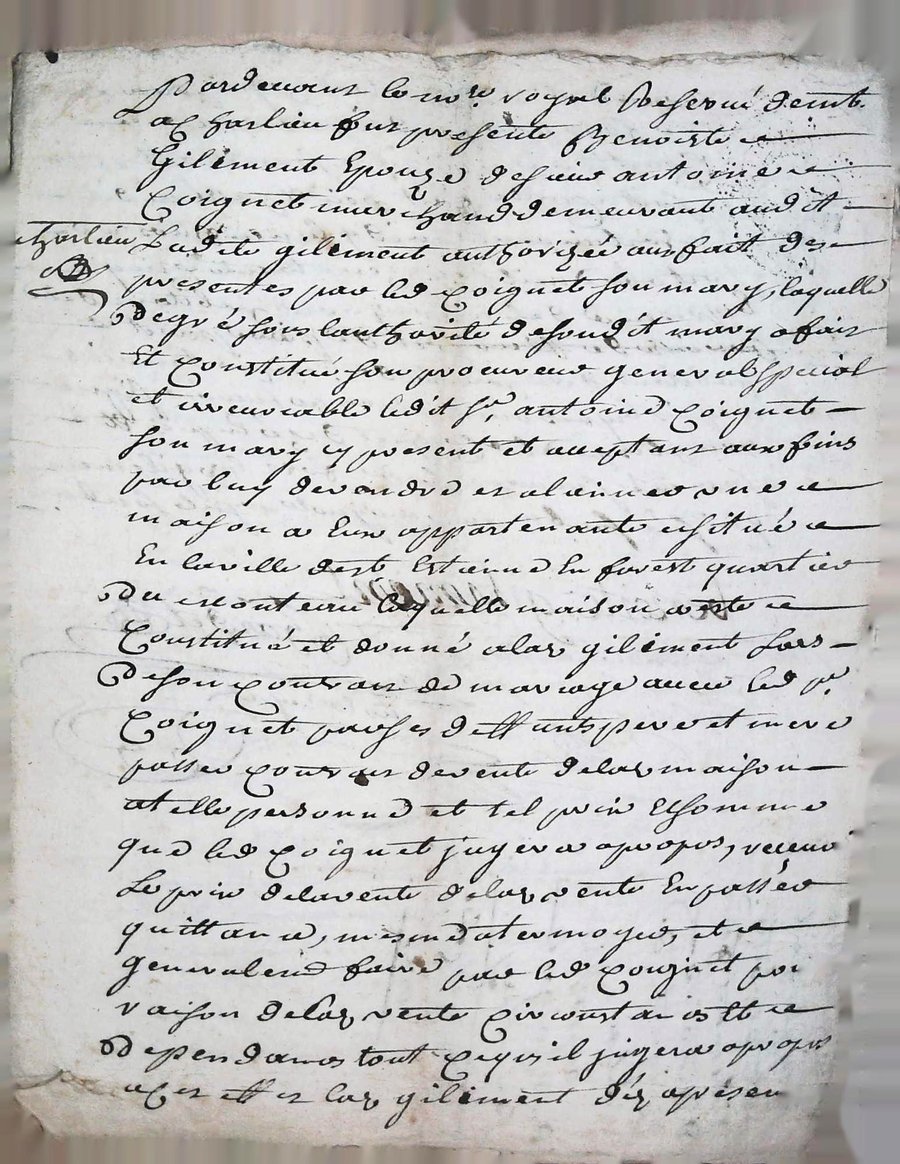 Pardevant le no.re royal Reservé demt.
a Charlieu fut presente Benoiste
Gilement Epouze de sieur antoine
Coignet marchand demeurant audit
Charlieu Ladite gilement authorizée au fait des
presentes par led Coignet son mary, laquelle
de gré sous lauthorité de sondit mary a fait
Et Constitué son procureur general special
et irreuocable ledit Sr. antoine Coignet
son mary cy present et acceptant aux fins
par luy de vendre et alainner une
maison a Eux appartenante située
En la ville de st Estienne En forest quartier
du laquelle maison a este
Constitué et donné a lad gilement Lors
de son Contrat de mariage auec led sr
Coignet par ses deffunts pere et mere
passer Contrat de vente de lad maison
a telle personne et tel prix Et somme
que led Coignet jugera apropos, receuoi
Le prix de la vente de lad vente En passer
quittance, mesme atermoyer, et
generalemt faire par led Coignet pou
raison de lad vente Circonstances Et
dependances tout Ce qu'il jugera apropos
a Cet effet lad gilement déz apresen